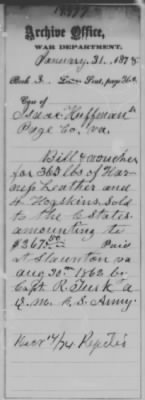 Archive Office,
WAR DEPARTMENT,
January, 31, 1878
Book 3. Loose Lent, page 360
Case of
Isaac Huffman
Page Co. Va.
Bill & voucher
for 363 lbs of Har-
ness Leather and
4 Hogskins Sold
to the C States
amounting to
$3675.00 Paid
at Staunton va
Aug 30th 1862 by
Capt R. Turk a
Q. M. C. S. Army.